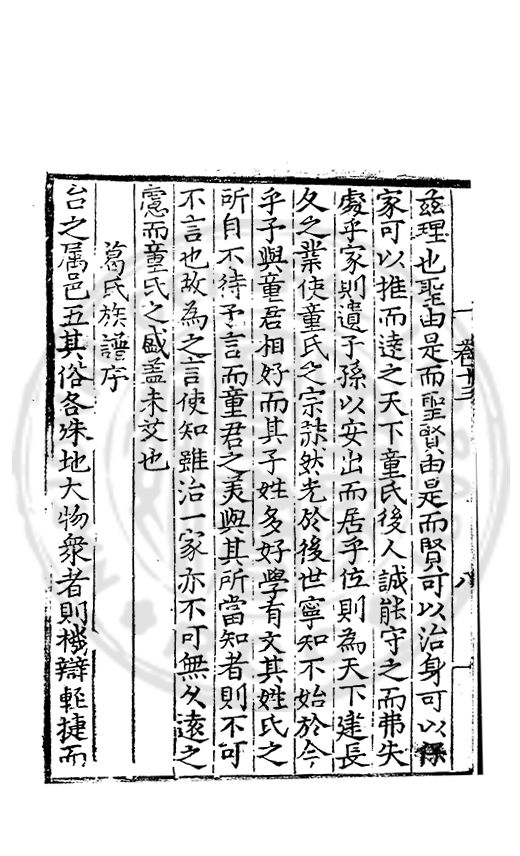 茲理也聖由是而聖賢由是而賢可以治身可以保
家可以推而達之天下童氏後人誠能守之而弗失
處乎家則遺子孫以安出而居乎位則為天下建長
久之業使童氏之宗赫然光於後世寧知不始於今
乎予與童君相好而其子姓多好學有文其姓氏之
所自不待予言而童君之美與其所當知者則不可
不言也故為之言使知雖治一家亦不可無久遠之
慮而童氏之盛盖未艾也
葛氏族譜序
台之属邑五其俗各殊地大物衆者則機辯輕捷而
卷十三
八